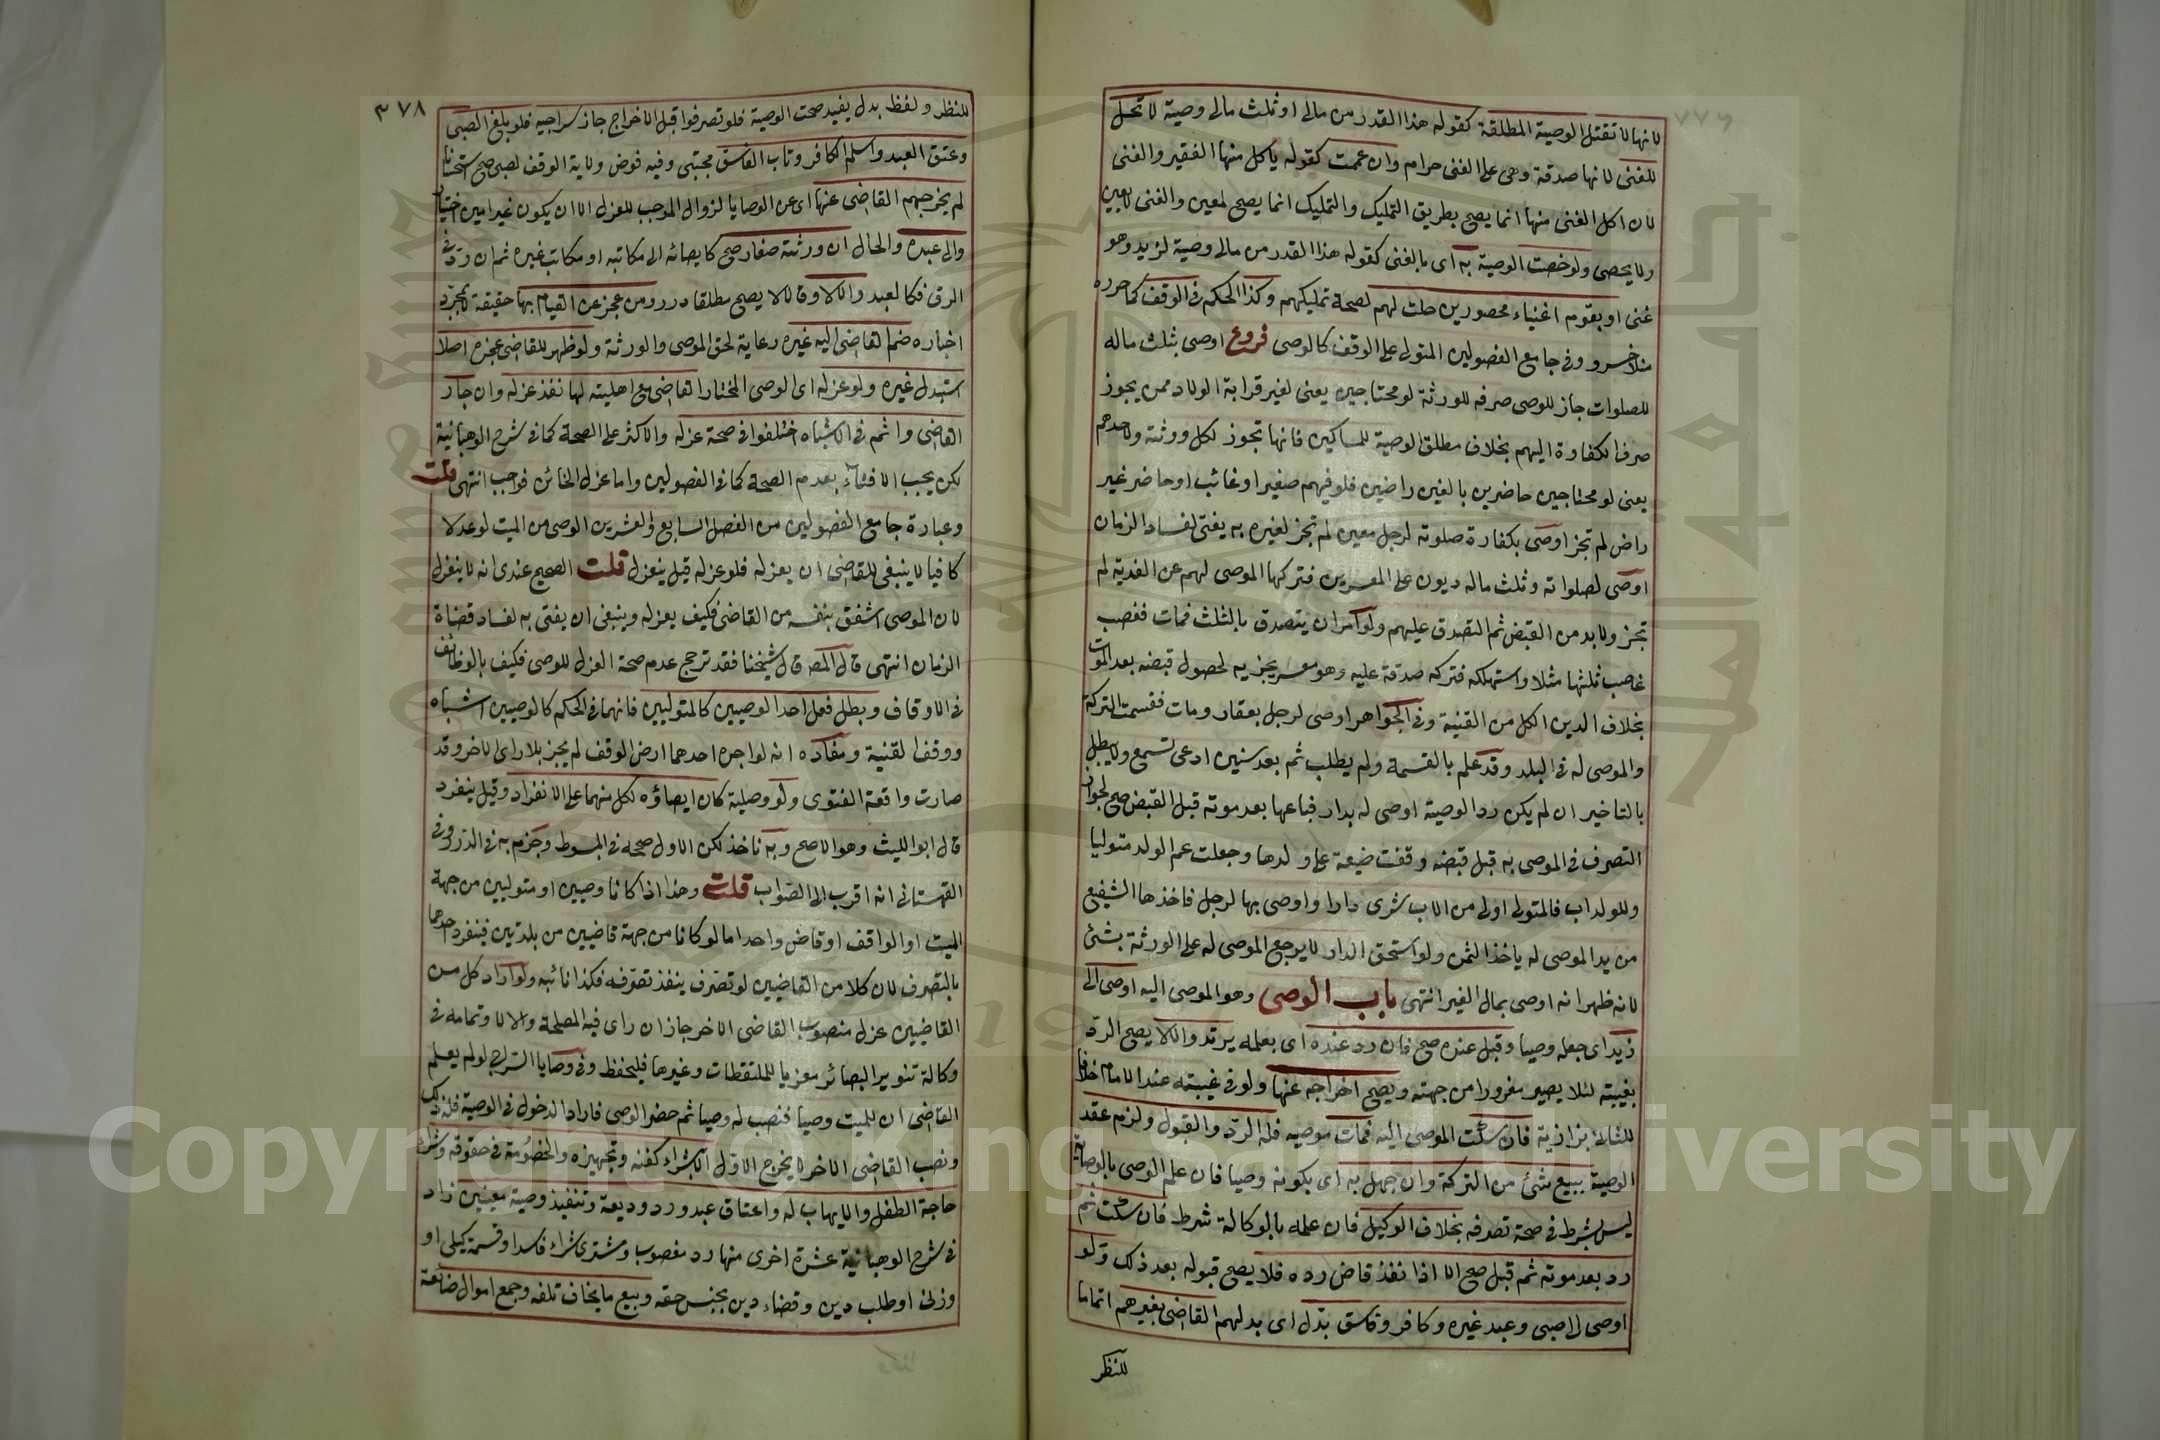 لانها لا تقتل الوصية المطلقة كقوله هذا القدر من مالى او ثلث مالى وصية لا تحل
للغنى لانها صدقة وهى على الغنى حرام وان عممت كقوله ياكل منها الفقير والغنى
لان اكل الغنى منها انما يصح بطريق التمليك والتمليك انما يصح لمعين والغنى لا يعين
ولا يحصى ولو خصت الوصية به اى بالغنى كقوله هذا القدر من مالى وصية لزيد وهو
غنى او بقوم اغنياء محصورين حلت لهم لصحة تمليكهم وكذا الحكم فى الوقف كما حرره
منلاخسرو وفى جامع الفصولين المتولى على الوقف كالوصى فروع اوصى بثلث ماله
للصلوات جاز للوصى صرفه للورثة لو محتاجين يعنى لغير قرابة الولاد ممن يجوز
صرف الكفارة اليهم بخلاف مطلق الوصية للمساكين فانها تجوز لكل وورثته ولاحدهم
يعنى لو محتاجين حاضرين بالغين راضين فلو فيهم صغير او غائب او حاضر غير
راض لم تجز اوصى بكفارة صلوته لرجل معين لم تجز لغيره به يفتى لفساد الزمان
اوصى لصلواته وثلث ماله ديون على المعسرين فتركها الموصى لهم عن الفدية لم
تجز ولا بد من القبض ثم التصدق عليهم ولو امر ان يتصدق بالثلث فمات فغصب
غاصب ثلثها مثلا واستهلكه فتركه صدقة عليه وهو معسر يجزيه لحصول قبضه بعد الموت
بخلاف الدين الكل من القنية وفى الجواهر اوصى لرجل بعقار ومات فقسمت التركة
والموصى له فى البلد وقد علم بالقسمة ولم يطلب ثم بعد سنين ادعى تسمع ولا يبطل
بالتاخير ان لم يكن رد الوصية اوصى له بدار فباعها بعد موته قبل القبض صح لجواز
التصرف فى الموصى به قبل قبضه وقفت ضيعة على ولدها وجعلت عم الولد متوليا
وللولد اب فالمتولى اولى من الاب شرى دارا واوصى بها لرجل فاخذها الشفيع
من يد الموصى له ياخذ الثمن ولو استحق الدار لا يرجع الموصى له على الورثة بشئ
لانه ظهر انه اوصى بمال الغير انتهى باب الوصى وهو الموصى اليه اوصى الى
زيد اى جعله وصيا وقبل عنده صح فان رد عنده اى بعلمه يرتد والا لا يصح الرد
بغيبته لئلا يصير مغرورا من جهته ويصح اخراجه عنها ولو فى غيبته عند الامام خلافا
للثانى بزازية فان سكت الموصى اليه فمات موصيه فله الرد والقبول ولزم عقد
الوصية ببيع شئ من التركة وان جهل به اى بكونه وصيا فان علم الوصى بالوصاية
ليس بشرط فى صحة تصرفه بخلاف الوكيل فان علمه بالوكالة شرط فان سكت ثم
رد بعد موته ثم قبل صح الا اذا نفذ قاض رده فلا يصح قبوله بعد ذلك ولو
اوصى الى صبى وعبد غيره وكافر وفاسق بدل اى بدلهم القاضى بغيرهم اتماما
للنظر
٣٧٨
للنظر ولفظ بدل يفيد صحت الوصية فلو تصرفوا قبل الاخراج جاز سراجيه فلو بلغ الصبى
وعتق العبد واسلم الكافر وتاب الفاسق مجتبى وفيه فوض ولاية الوقف لصبى صح استحسانا
لم يخرجهم القاضى عنها اى عن الوصايا لزوال الموجب للعزل الا ان يكون غير امين اختيار
والى عبده والحال ان ورثته صغار صح كايصائه الى مكاتبه او مكاتب غيره ثم ان رد فى
الرق فكالعبد والا لا وقالا لا يصح مطلقا درر ومن عجز عن القيام بها حقيقة لا بمجرد
اخباره ضم القاضى اليه غيره رعاية لحق الموصى والورثة ولو ظهر للقاضى عجزه اصلا
استبدل غيره ولو عزله اى الوصى المختار القاضى مع اهليته لها نفذ عزله وان جار
القاضى واثم فى الاشباه اختلفوا فى صحة عزله والاكثر على الصحة كما فى شرح الوهبانية
لكن يجب الافتاء بعدم الصحة كما فى الفصولين واما عزل الخائن فواجب انتهى قلت
وعبارة جامع الفصولين من الفصل السابع والعشرين الوصى من الميت لو عدلا
كافيا لا ينبغى للقاضى ان يعزله فلو عزله قيل ينعزل قلت الصحيح عندى انه لا ينعزل
لان الموصى اشفق بنفسه من القاضى فكيف يعزله وينبغى ان يفتى به لفساد قضاة
الزمان انتهى قال المص قال شيخنا فقد ترجح عدم صحة العزل للوصى فكيف بالوظائف
فى الاوقاف وبطل فعل احد الوصيين كالمتوليين فانهما فى الحكم كالوصيين اشباه
ووقف القنية ومفاده انه لو اجره احدهما ارض الوقف لم يجز بلا راى الاخر وقد
صارت واقعة الفتوى ولو وصلية كان ايصاؤه لكل منهما على الانفراد وقيل ينفرد
قال ابو الليث وهو الاصح وبه ناخذ لكن الاول صححه فى المبسوط وجزم به فى الدرر وفى
القهستانى انه اقرب الى الصواب قلت وهذا اذا كانا وصيين او متوليين من جهة
الميت او الواقف او قاض واحد اما لو كانا من جهة قاضيين من بلدتين فينفرد احدهما
بالتصرف لان كلا من القاضيين لو تصرف ينفذ تصرفه فكذا نائبه ولو اراد كل من
القاضيين عزل منصوب القاضى الاخر جاز ان راى فيه المصلحة والا لا وتمامه فى
وكالة تنوير البصائر معزيا للملتقطات وغيرها فليحفظ وفى وصايا السراج لو لم يعلم
القاضى ان للميت وصيا فنصب له وصيا ثم حضر الوصى فاراد الدخول فى الوصية فله ذلك
ونصب القاضى الاخر لا يخرج الاول الا بشراء كفنه وتجهيزه والخصومة فى حقوقه وشراء
حاجة الطفل والايهاب له واعتاق عبد ورد وديعة وتنفيذ وصية معينين زاد
فى شرح الوهبانية عشرة اخرى منها رد مغصوب ومشترى شراء فاسدا وقسمة كيلى او
وزنى او طلب دين وقضاء دين بجنس حقه وبيع ما يخاف تلفه وجمع اموال ضائعة
Copyright © King Saud University